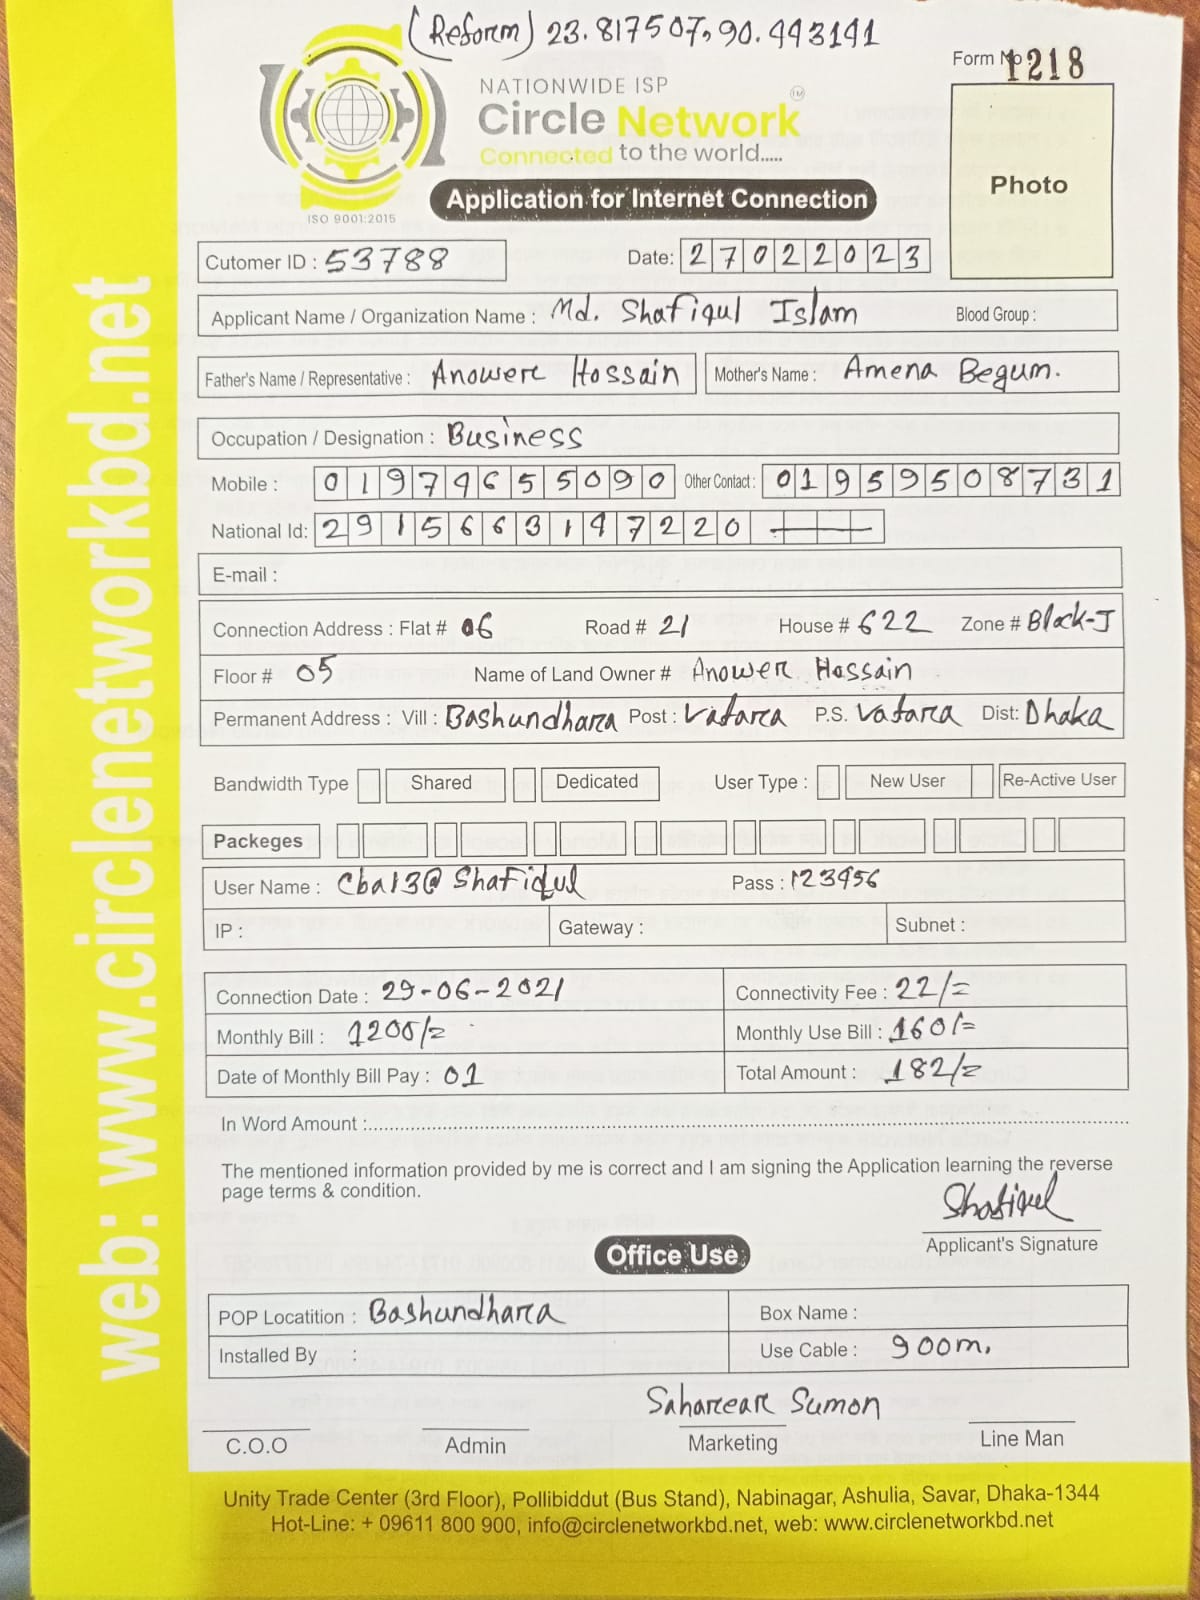 (Reform) 23.817507, 90.443141
Form No 1218
NATIONWIDE ISP
Circle Network TM
Connected to the world.....
ISO 9001:2015
Application for Internet Connection
Photo
Cutomer ID : 53788
Date: 27022023
Applicant Name / Organization Name : Md. Shafiqul Islam Blood Group :
Father's Name / Representative : Anowere Hossain Mother's Name : Amena Begum.
Occupation / Designation : Business
Mobile : 01974655090 Other Contact : 01959508731
National Id: 2915663147220
E-mail :
Connection Address : Flat # 06 Road # 21 House # 622 Zone # Block-J
Floor # 05 Name of Land Owner # Anower Hossain
Permanent Address : Vill : Bashundhara Post : Vatara P.S. Vatara Dist: Dhaka
Bandwidth Type Shared Dedicated User Type : New User Re-Active User
Packeges
User Name : Cba13@Shafiqul Pass : 123456
IP : Gateway : Subnet :
Connection Date : 29-06-2021 Connectivity Fee : 22/=
Monthly Bill : 1200/= Monthly Use Bill : 160/=
Date of Monthly Bill Pay : 01 Total Amount : 182/=
In Word Amount :
The mentioned information provided by me is correct and I am signing the Application learning the reverse
page terms & condition.
Shafiqul
Applicant's Signature
Office Use
POP Locatition : Bashundhara Box Name :
Installed By : Use Cable : 900m.
Saharear Sumon
C.O.O Admin Marketing Line Man
Unity Trade Center (3rd Floor), Pollibiddut (Bus Stand), Nabinagar, Ashulia, Savar, Dhaka-1344
Hot-Line: + 09611 800 900, info@circlenetworkbd.net, web: www.circlenetworkbd.net
web: www.circlenetworkbd.net